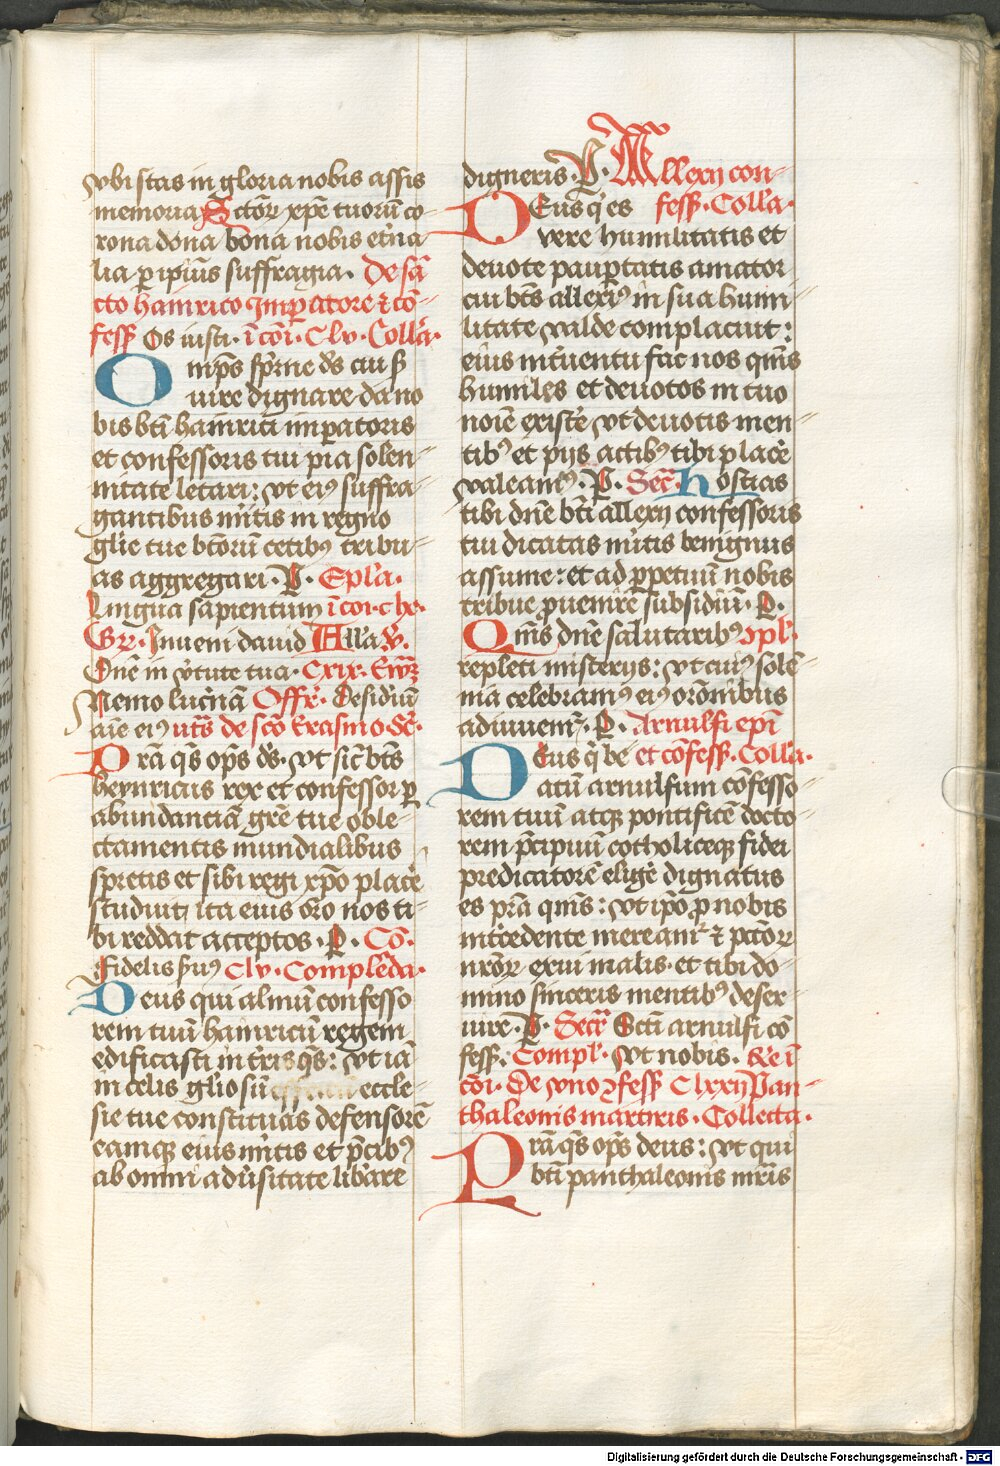 vbi stas in gloria nobis assis
memoria Sctōꝝ xp̄e tuoꝝ co
rona dona bona nobis et̄na
lia ꝑ ipiūs suffragia. De sā
cto hainrico Imꝑatore ⁊ cō
fess̄ Os iusti. ī cōi. Clv. Collc̄a.
Omp̄s sp̄rne ds̄ cui ß
uire dignare da no
bis bti̅ hainrici imꝑatoris
et confessoris tui pia solen
nitate letari: vt eiꝰ suffra
gantibus mītis in regno
glīe tue bt̄oꝝ cetibꝰ tribu
as aggregari. P. Epl̄a.
Lingua sapientum ī cōi. c
Gr̄. Inueni dauid All̄a v̄.
Dn̄e in v̄tute tua. Cxix. Ew̄
Nemo lucernā Offr̄. Desidiū
aīe eiꝰ vts̄ de sc̄o Erasmo. Sc̄.
Prā qs̄ op̄s ds̄. vt sic̄ bt̄s
heynricus rex et confessor ꝑ
abundanciā gr̄e tue oble
ctamentis mundialibus
spretis et sibi regi xp̄o placē
studuit, ita eius or̄o nos ti
bi reddat acceptos. P. Cō.
Fidelis ß̄uꝰ Clv. Complēda.
Deus qui almum confesso
rem tuū hainricū regem
edificasti in tr̄is qs̄: vt iā
in celis glio sū eccle
sie tue constituas defensorē
eamqꝫ eius mītis et p̄cibꝰ
ab omni adūsitate lib̄are
digneris. P. Allexii con
Deus q̄ es fess̄. Collc̄a.
vere humilitatis et
deuote pauꝑtatis amator
cui bt̄s allexiꝰ in sua humi
litate valde complacuit:
eius int̄uentu fac nos qm̄s
humiles et deuotos in tuo
noīe existē̄ vt deuotis men
tibꝰ et pijs actibꝰ tibi placē̄
valeamꝰ. P. Secr̄. Hostias
tibi dn̄e bt̄i allexij confessoris
tui dicatas mītis benignus
assume: et ad ꝑpetuū nobis
tribue ꝓuenire subsidiū. P.
Qm̄s dn̄e salutaribꝰ Cpl̄.
repleti misterijs: vt cuiꝰ solē
nia celebramꝰ eiꝰ or̄onibus
adiuuem̄. P. Arnulfi ep̄i
Deus q̄ be et cōfess̄. Collc̄a.
atū arnulfum cōfesso
rem tuū atqꝫ pontificē docto
rem p̄cipuū cotholiceqꝫ fidei
predicatorē eligē̄ dignatus
es pr̄a qm̄s: vt ip̄o ꝓ nobis
int̄cedente mereamur ⁊ pctōꝝ
nr̄oꝝ exui malis. et tibi do
mino sinceris mentibꝰ deser
uire. P. Secr̄ Scti arnulfi cō
fess̄. Compl̄. vt nobis. Re ī
cōi. De vno ꝯfess̄ Clxxij Pan
thaleonis martiris. Collecta.
Prā qs̄ op̄s deus: vt qui
bt̄i panthaleonis mr̄is
Digitalisierung gefördert durch die Deutsche Forschungsgemeinschaft - DFG